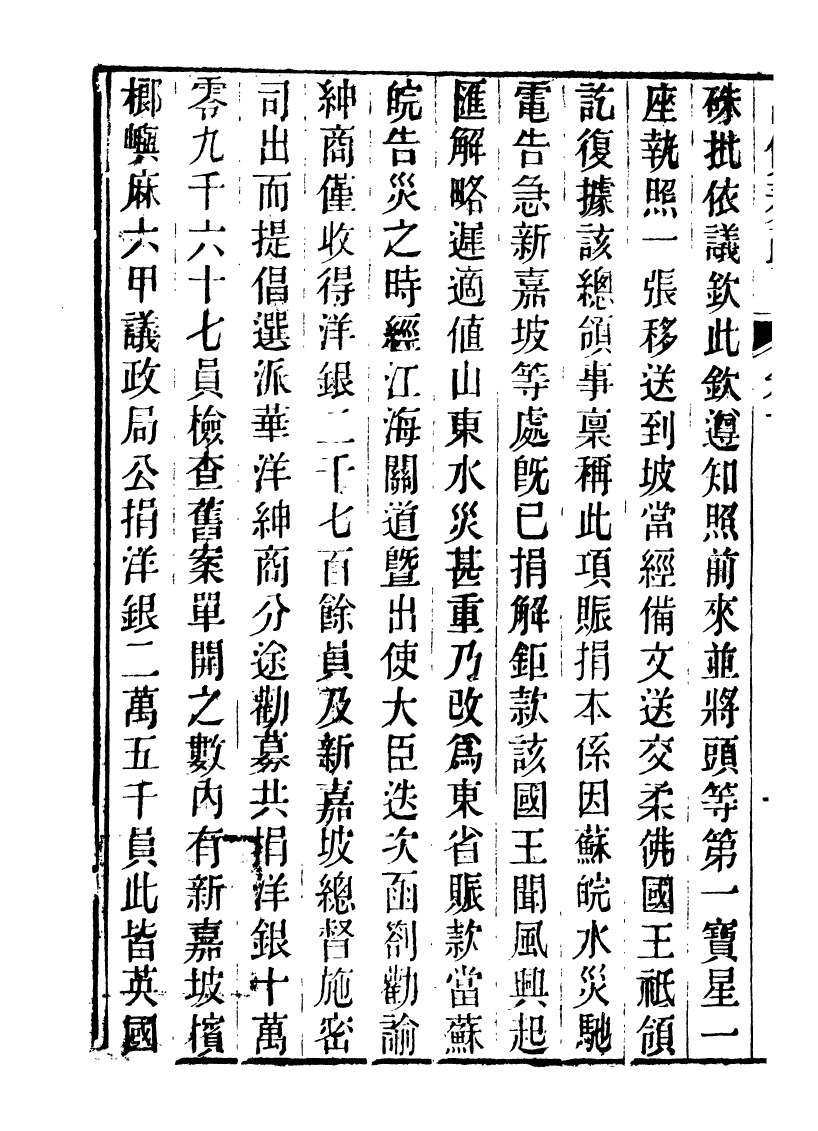 硃批依議欽此欽遵知照前來並將頭等第一寶星一
座執照一張移送到坡當經備文送交柔佛國王祗領
訖復據該總領事稟稱此項賑捐本係因蘇皖水災馳
電告急新嘉坡等處旣已捐解鉅款該國王聞風興起
匯解略遲適値山東水災甚重乃改爲東省賑款當蘇
皖告災之時經江海關道曁出使大臣迭次函劄勸諭
紳商僅收得洋銀二千七百餘員及新嘉坡總督施密
司出而提倡選派華洋紳商分途勸募共捐洋銀十萬
零九千六十七員檢查舊案單開之數內有新嘉坡檳
榔嶼麻六甲議政局公捐洋銀二萬五千員此皆英國